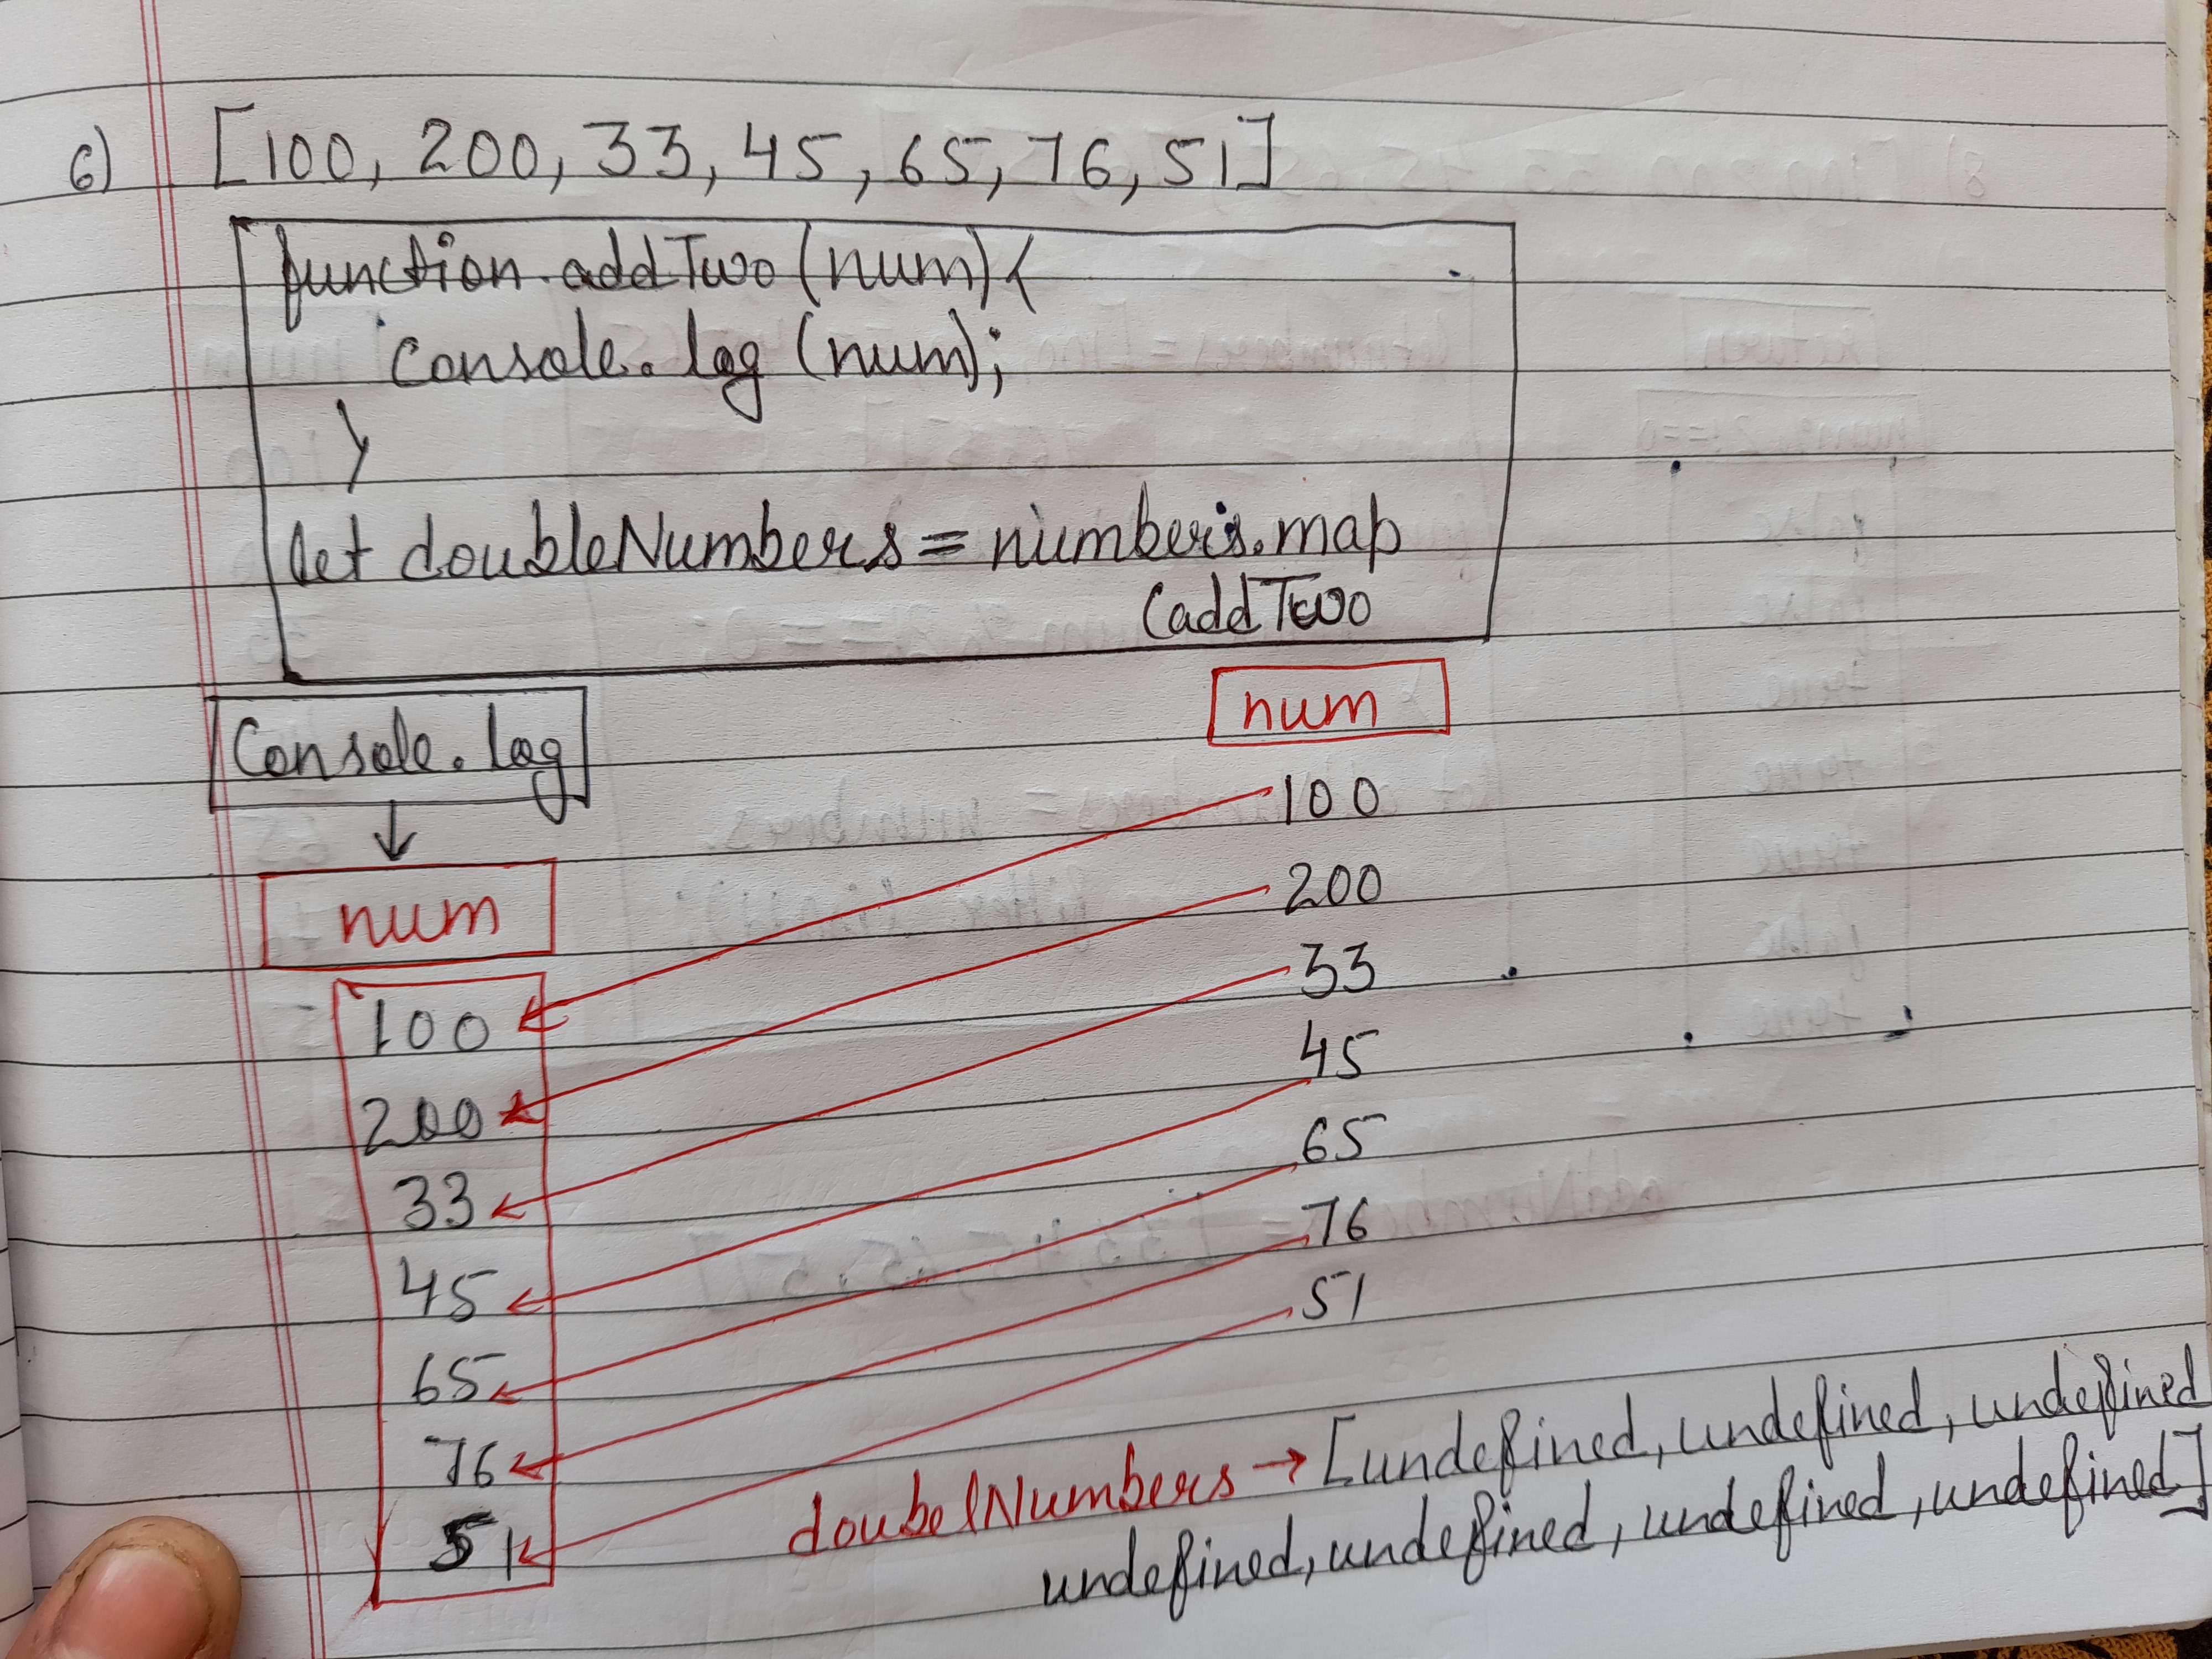 6) [100, 200, 33, 45, 65, 76, 51]
function addTwo (num) {
Console.log (num);
}
let doubleNumbers = numbers.map
(addTwo
Console.log
num
↓
num
100
200
33
45
65
76
51
100
200
33
45
65
76
51
doubelNumbers → [undefined, undefined, undefined
undefined, undefined, undefined, undefined]